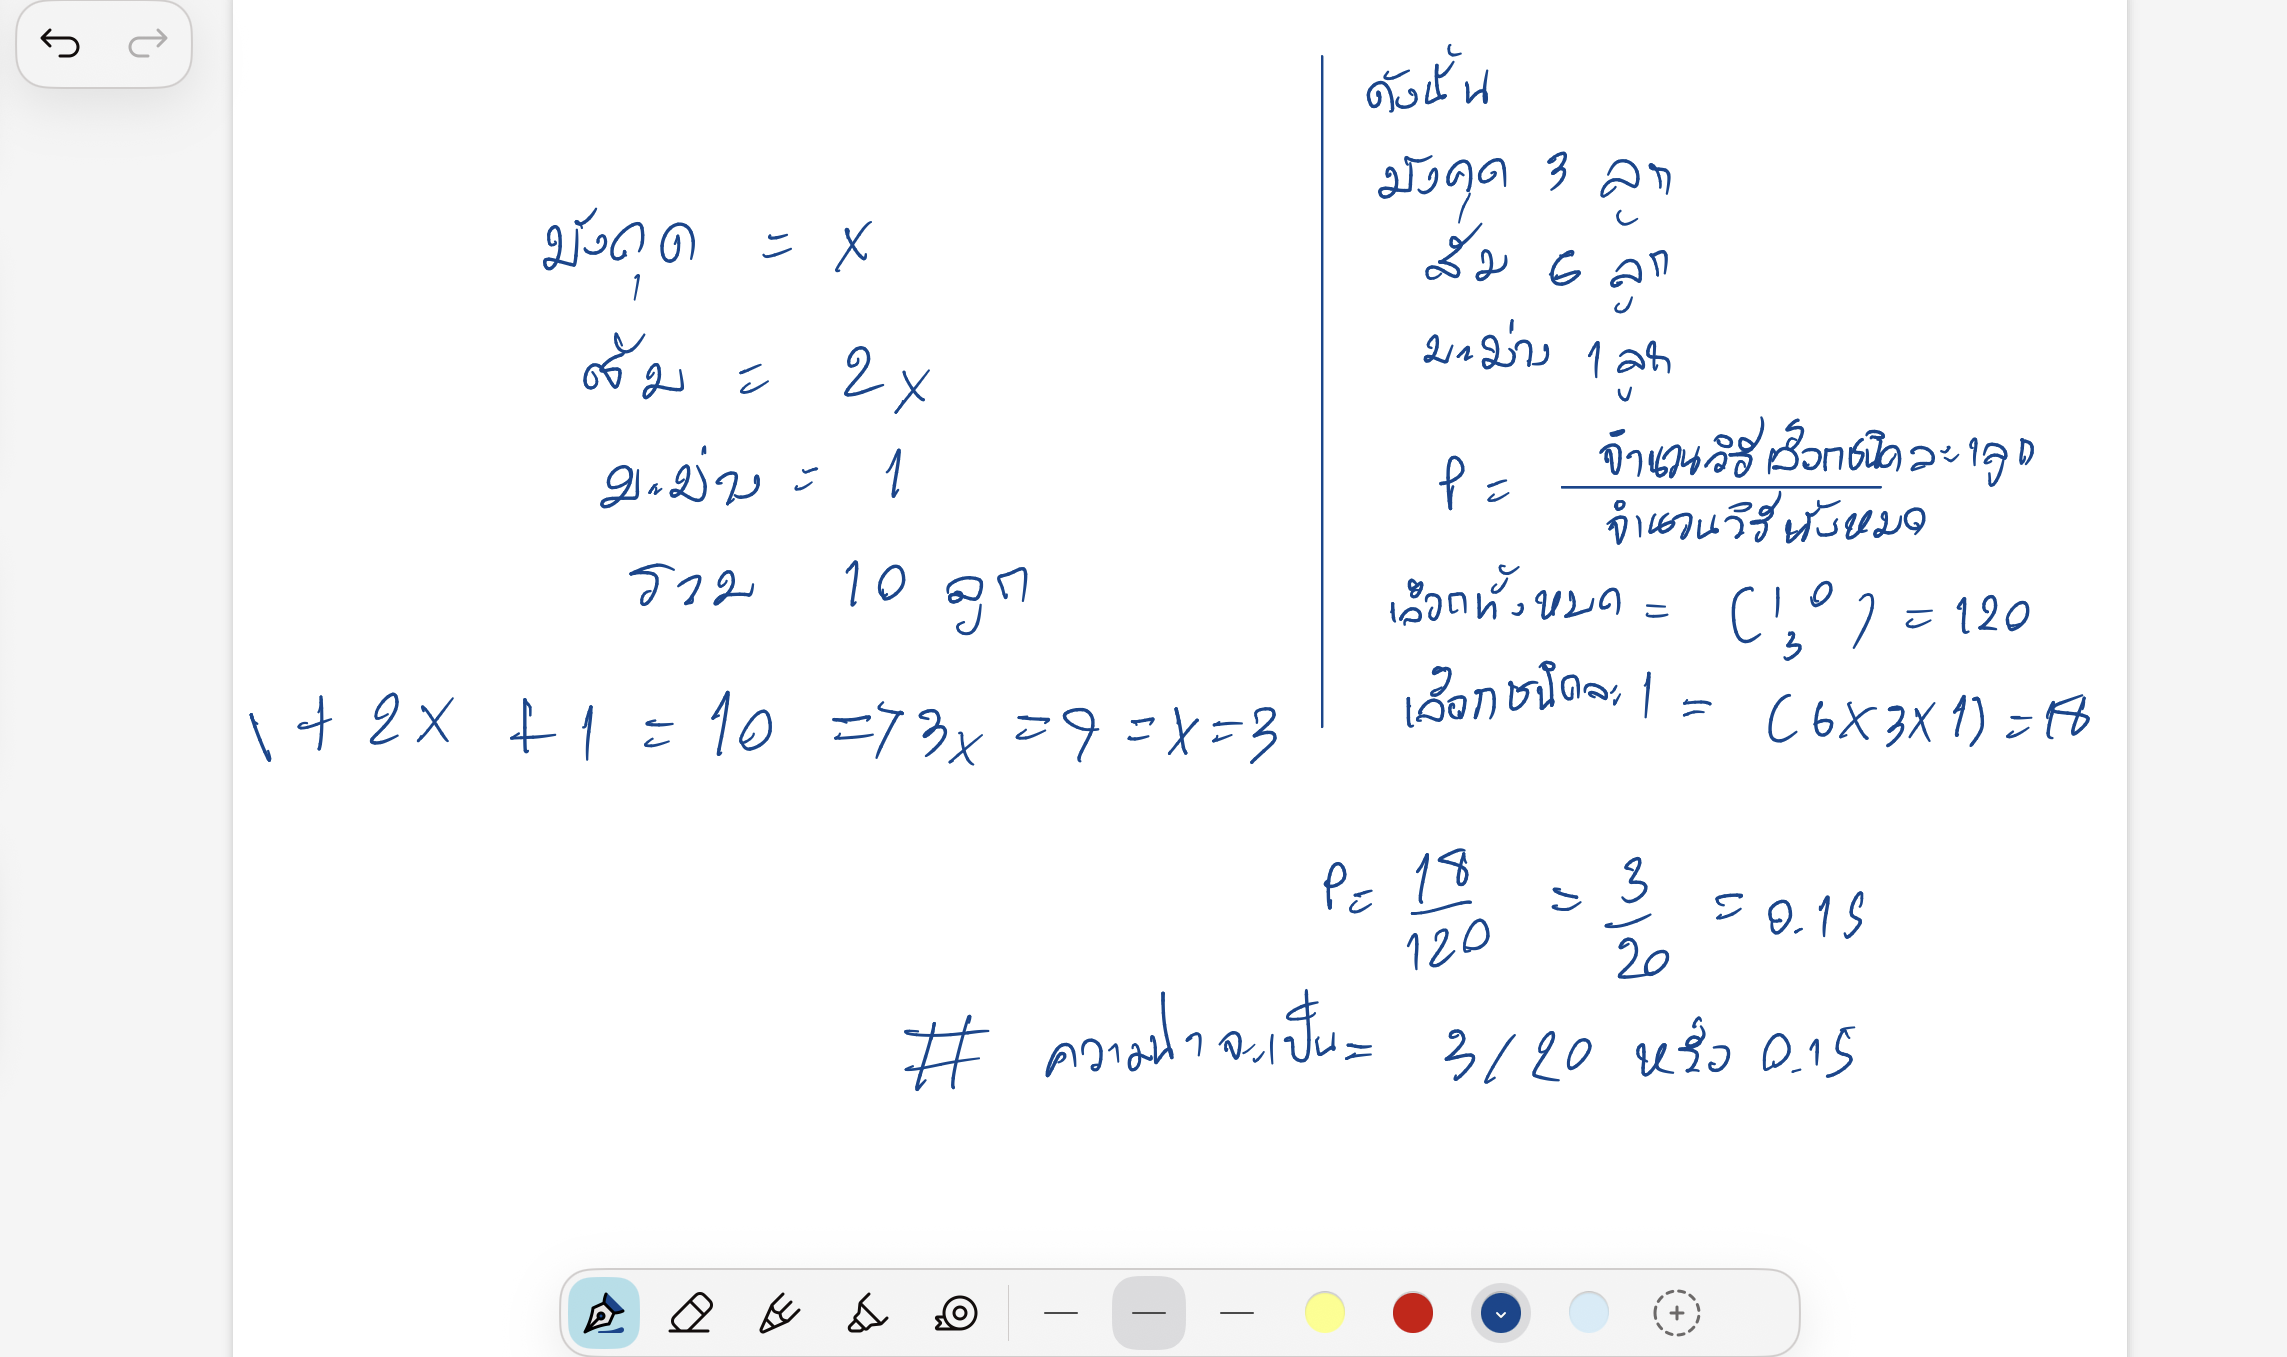 มังคุด = x
ส้ม = 2x
มะม่วง = 1
รวม 10 ลูก
\ + 2x + 1 = 10 => 3x = 9 = x = 3
ดังนั้น
มังคุด 3 ลูก
ส้ม 6 ลูก
มะม่วง 1 ลูก
P = จำนวนวิธีเลือกชนิดละ 1 ลูก
จำนวนวิธีทั้งหมด
เลือกทั้งหมด = (10 3) = 120
เลือกชนิดละ 1 = (6x3x1) = 18
P = 18/120 = 3/20 = 0.15
# ความน่าจะเป็น = 3/20 หรือ 0.15